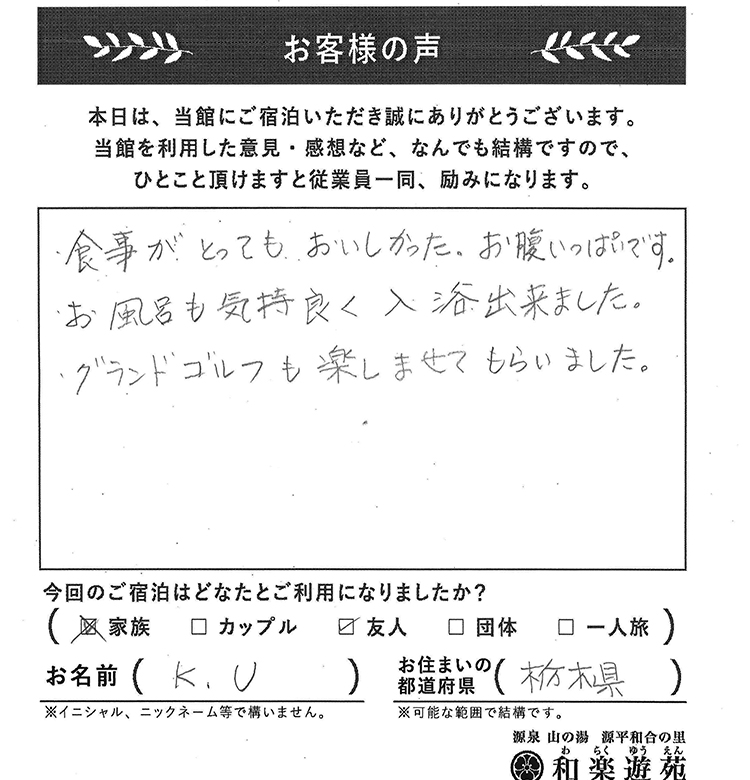 お客様の声
本日は、当館にご宿泊いただき誠にありがとうございます。
当館を利用した意見・感想など、なんでも結構ですので、
ひとこと頂けますと従業員一同、励みになります。
・食事が とっても おいしかった。お腹いっぱいです。
・お風呂も気持良く入浴出来ました。
・グランドゴルフも楽しませてもらいました。
今回のご宿泊はどなたとご利用になりましたか?
( ☒ 家族 □ カップル ☑ 友人 □ 団体 □ 一人旅 )
お名前 ( K.U ) お住まいの都道府県 ( 栃木県 )
※イニシャル、ニックネーム等で構いません。 ※可能な範囲で結構です。
源泉 山の湯 源平和合の里
わ らく ゆう えん
和楽遊苑